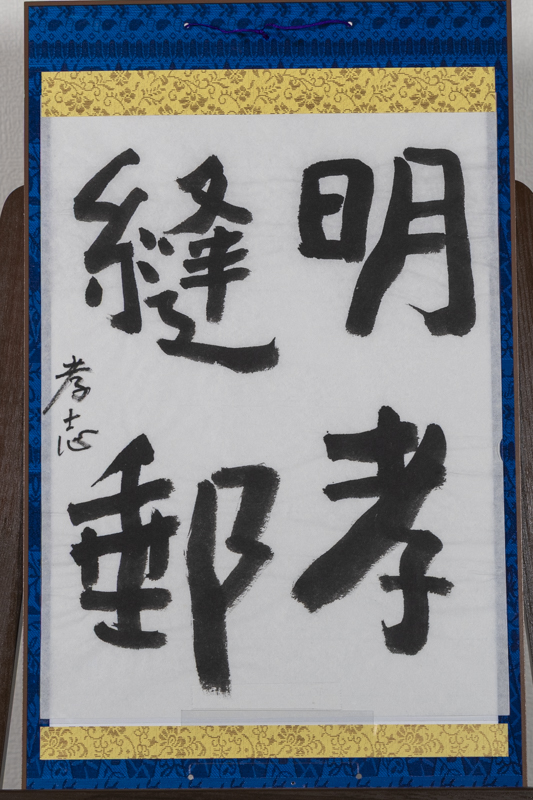 明孝
縫郵
孝志